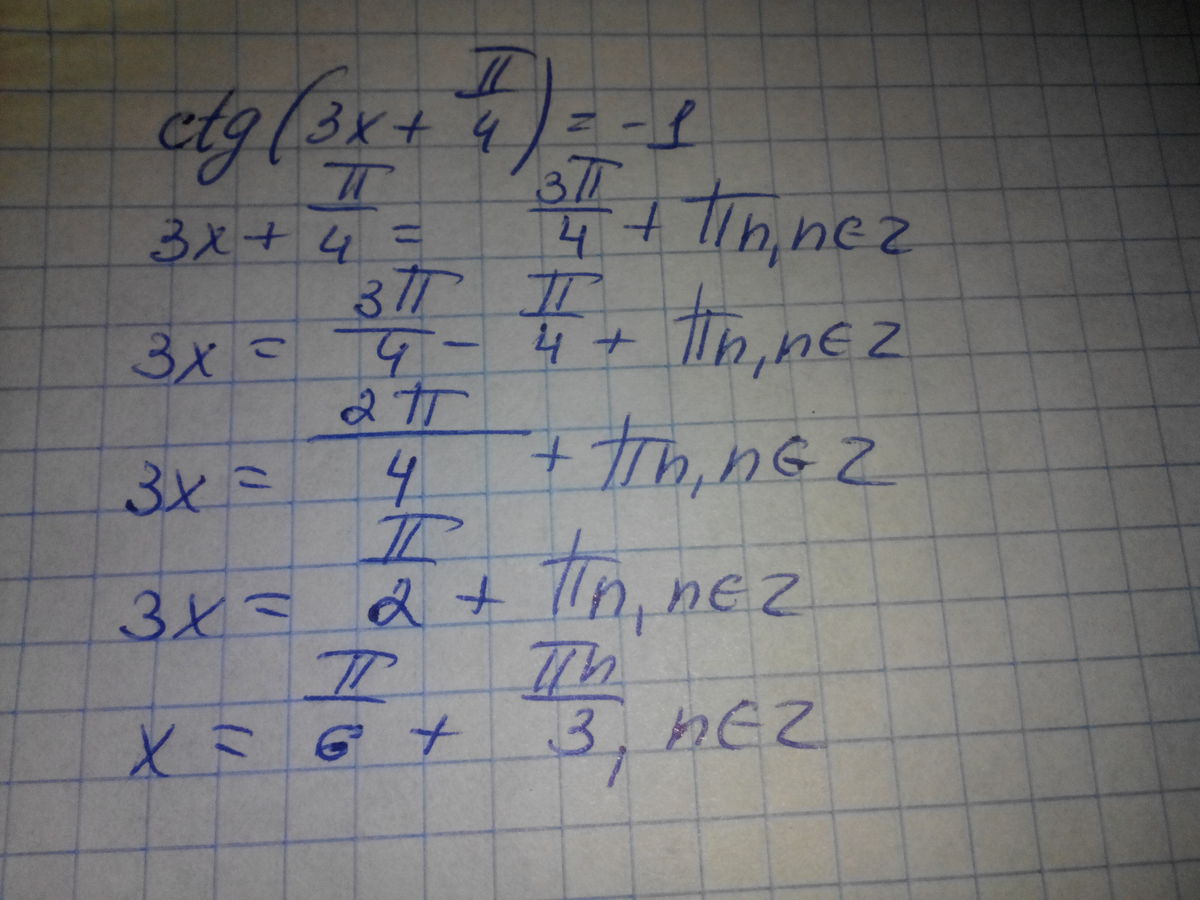 ctg(3x + π/4) = -1
3x + π/4 = 3π/4 + πn, n∈Z
3x = 3π/4 - π/4 + πn, n∈Z
3x = 2π/4 + πn, n∈Z
3x = π/2 + πn, n∈Z
x = π/6 + πn/3, n∈Z